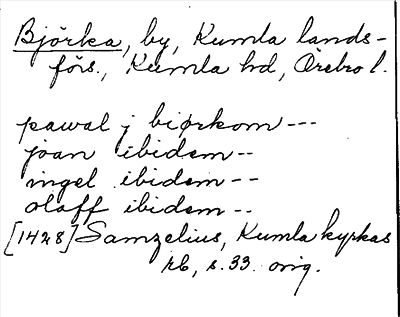 Björka, by, Kumla lands-
förs., Kumla hd, Örebro l.
pawal j biørkom ---
joan ibidem --
ingel ibidem --
olaff ibidem --
[1428] Samzelius, Kumla kyrkas
rb, s. 33. orig.